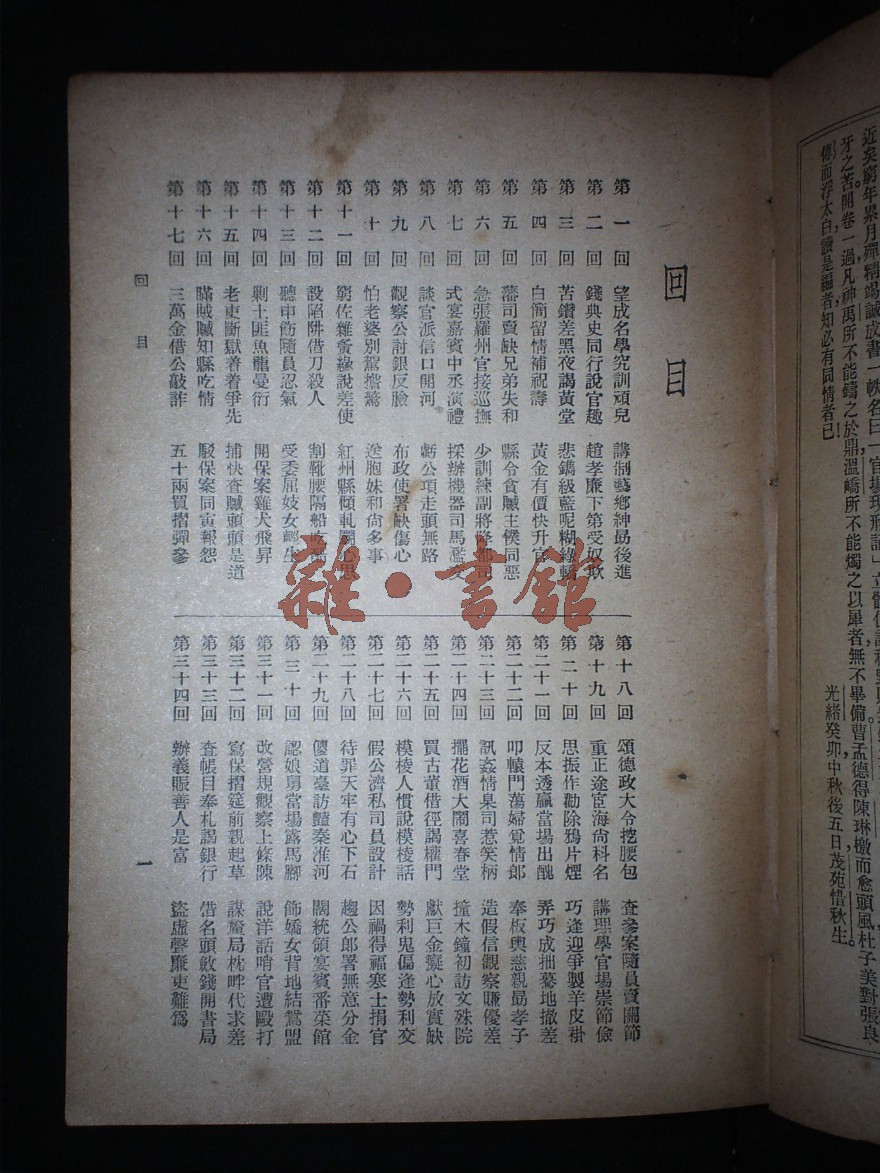 近矣窮年累月殫精竭誠成書一帙名曰「官場現形記」立體
牙之苦開卷一過凡神禹所不能鑄之於鼎溫嶠所不能燭之以犀者無不畢備曹孟德得陳琳檄而愈頭風杜子美對張良
傳而浮太白讀是編者知必有同情者已
光緒癸卯中秋後五日茂苑惜秋生
回目
第一回 望成名學究訓頑兒 講制藝鄉紳勗後進
第二回 錢典史同行說官趣 趙孝廉下第受奴欺
第三回 苦鑽差黑夜謁黃堂 悲鐫級藍呢糊綠轎
第四回 白簡留情補祝壽 黃金有價快升官
第五回 藩司賣缺兄弟失和 縣令貪贓主僕同惡
第六回 急張羅州官接巡撫 少訓練副將降都司
第七回 式宴嘉賓中丞演禮 採辦機器司馬濫交
第八回 談官派信口開河 虧公項走頭無路
第九回 觀察公討銀反臉 布政使署缺傷心
第十回 怕老婆別駕擔驚 送胞妹和尚多事
第十一回 窮佐雜夤緣說差使 紅州縣傾軋鬬心思
第十二回 設陷阱借刀殺人 割靴腰隔船吃醋
第十三回 聽申飭隨員忍氣 受委屈妓女輕生
第十四回 剿土匪魚龍曼衍 開保案雞犬飛昇
第十五回 老吏斷獄着着爭先 捕快查贓頭頭是道
第十六回 瞞賊贓知縣吃情 駁保案同寅報怨
第十七回 三萬金借公敲詐 五十兩買摺彈參
第十八回 頌德政大令挖腰包 查參案隨員賣關節
第十九回 重正途宦海尚科名 講理學官場崇節儉
第二十回 思振作勸除鴉片煙 巧逢迎爭製羊皮褂
第二十一回 反本透贏當場出醜 弄巧成拙驀地撤差
第二十二回 叩轅門蕩婦覓情郎 奉板輿慈親勗孝子
第二十三回 訊姦情臬司惹笑柄 造假信觀察賺優差
第二十四回 擺花酒大鬧喜春堂 撞木鐘初訪文殊院
第二十五回 買古董借徑謁權門 獻巨金癡心放實缺
第二十六回 模棱人慣說模棱話 勢利鬼偏逢勢利交
第二十七回 假公濟私司員設計 因禍得福寒士捐官
第二十八回 待罪天牢有心下石 趨公郎署無意分金
第二十九回 傻道臺訪豔秦淮河 闊統領宴賓番菜館
第三十回 認娘舅當場露馬腳 飾嬌女背地結鴛盟
第三十一回 改營規觀察上條陳 說洋話哨官遭毆打
第三十二回 寫保摺筵前親起草 謀釐局枕畔代求差
第三十三回 查帳目奉札謁銀行 借名頭斂錢開書局
第三十四回 辦義賑善人是富 盜虛聲廉吏難為
回目
一
雜·書館